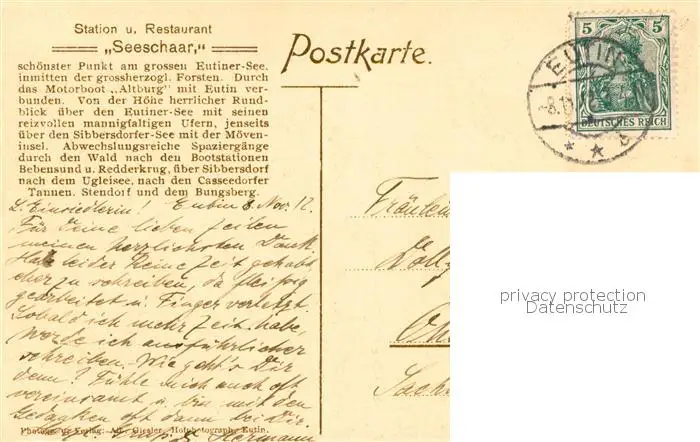 Station u. Restaurant
„Seeschaar,“
schönster Punkt am grossen Eutiner-See,
inmitten der grossherzogl. Forsten. Durch
das Motorboot „Altburg” mit Eutin ver-
bunden. Von der Höhe herrlicher Rund-
blick über den Eutiner-See mit seinen
reizvollen mannigfaltigen Ufern, jenseits
über den Sibbersdorfer-See mit der Möven-
insel. Abwechslungsreiche Spaziergänge
durch den Wald nach den Bootstationen
Bebensund u. Redderkrug, über Sibbersdorf
nach dem Ugleisee, nach den Casseedorfer
Tannen, Stendorf und dem Bungsberg.
L. Einsiedlerin! Eutin 8 Nov. 12.
Für Deine lieben Zeilen
meinen herzlichsten Dank
Habe leider keine Zeit gehabt
eher zu schreiben, da fleißig
gearbeitet u. Finger verletzt.
Sobald ich mehr Zeit habe,
werde ich ausführlicher
schreiben. Wie geht's Dir
denn? Fühle mich auch oft
vereinsamt u. bin mit den
Gedanken oft dann bei Dir.
Hermann
Photogr. u. Verlag: Ad. Giesler, Hofphotograph, Eutin.
Postkarte.
5 5
DEUTSCHES REICH
EUTIN
-8.11.
Fräulein
privacy protection
Datenschutz